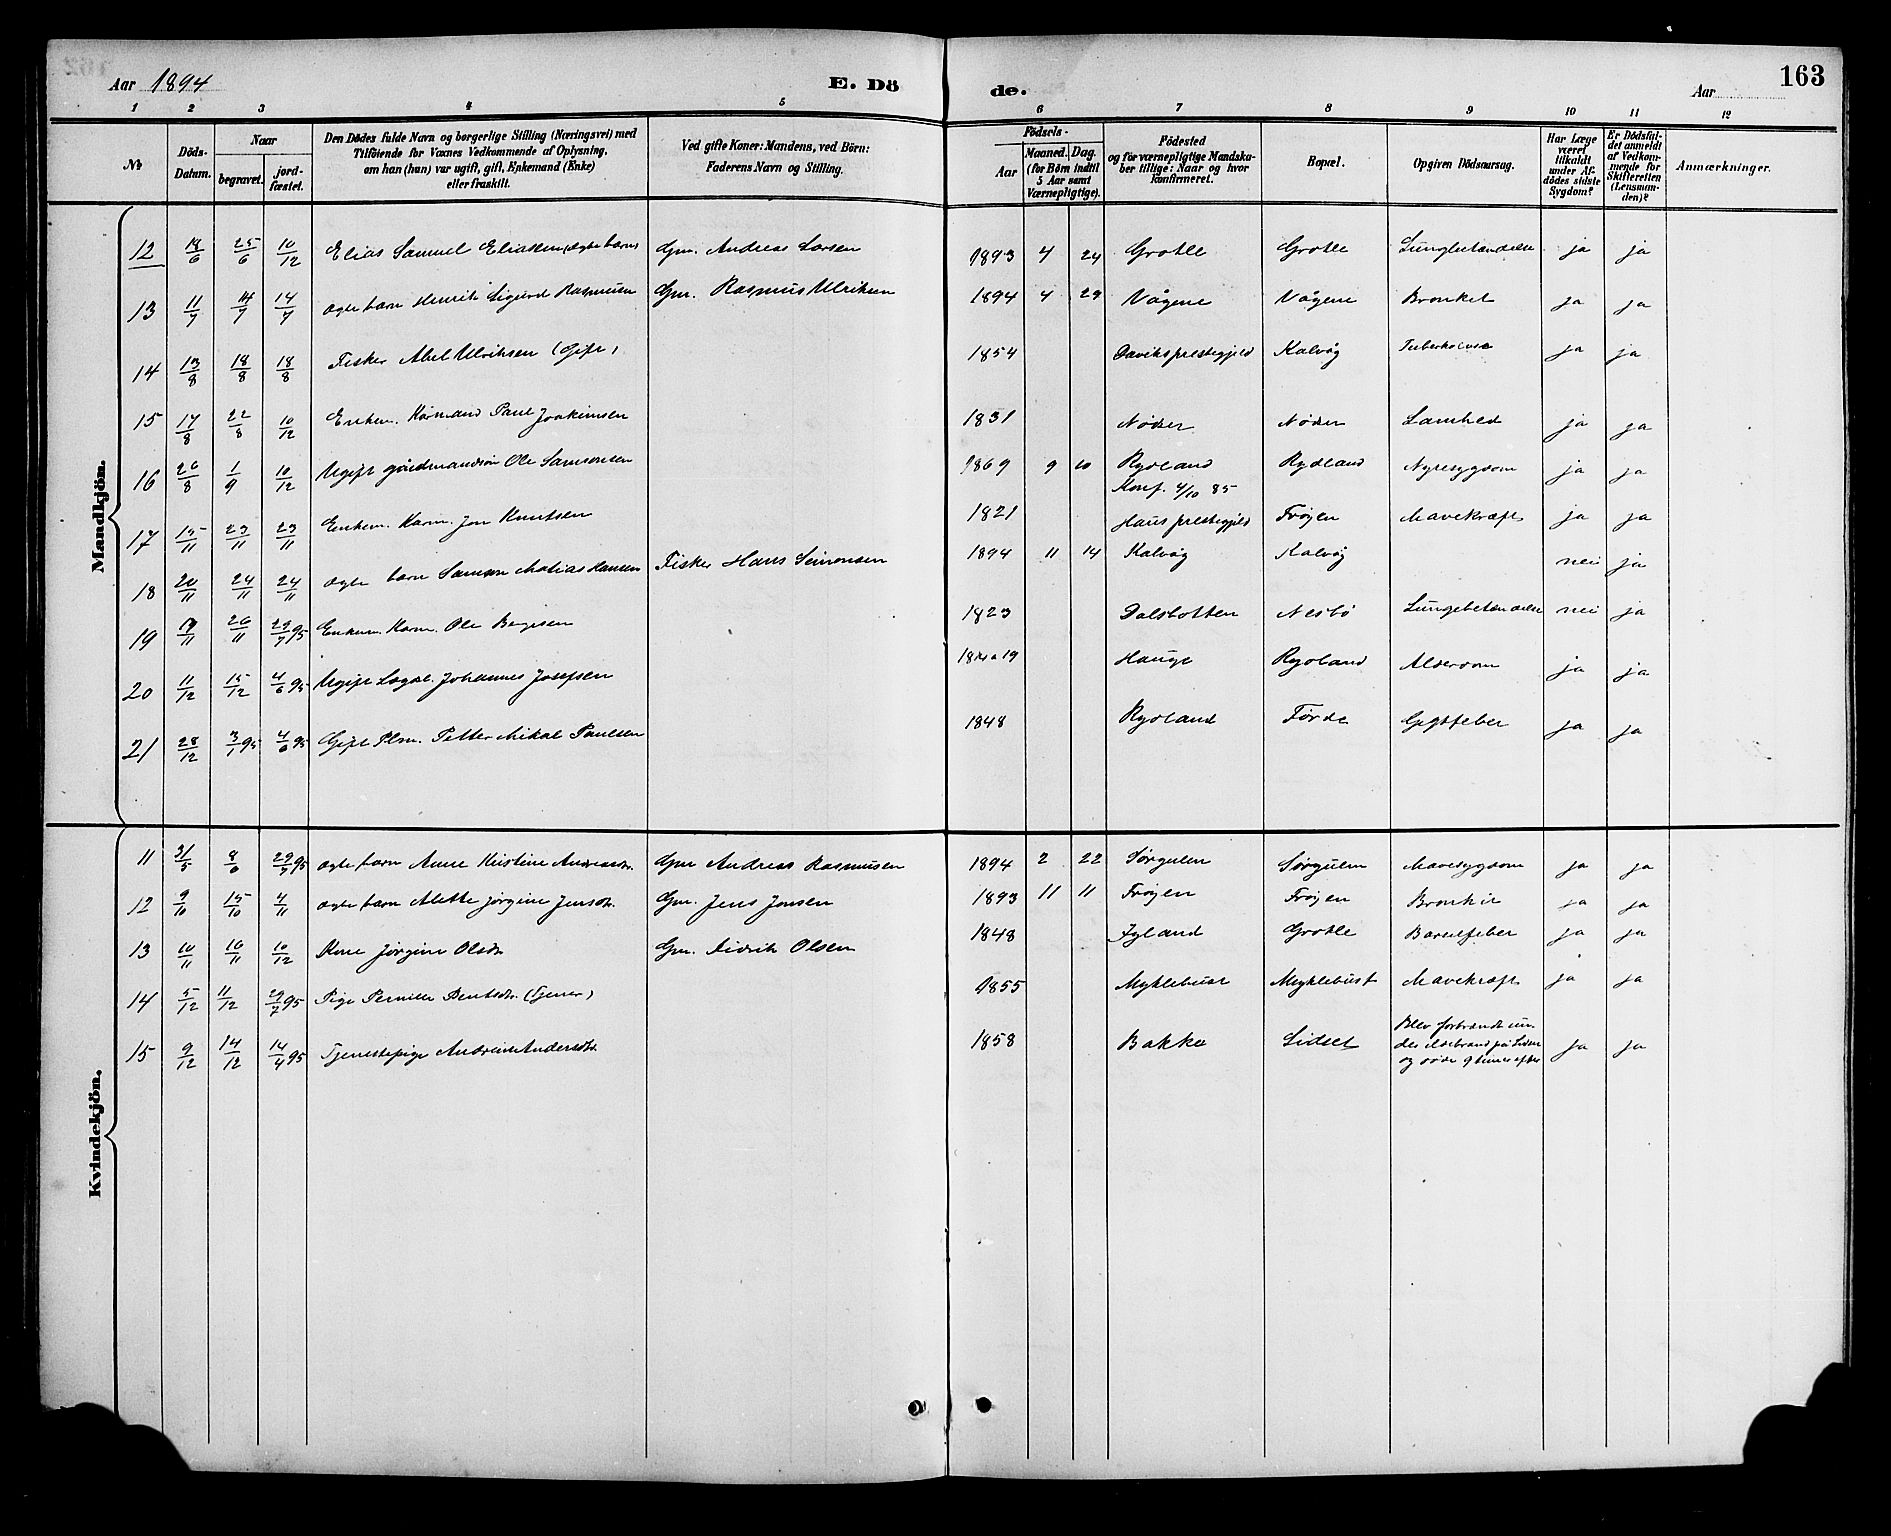 Aar 1894 E. Dö de. Aar 163
1 2 3 4 5 6 7 8 9 10 11 12
№ Döds-Datum. Naar begravet. jordfæstet. Den Dödes fulde Navn og borgerlige Stilling (Næringsvei) med Tilföiende for Voxnes Vedkommende af Oplysning, om han (hun) var ugift, gift, Enkemand (Enke) eller fraskilt. Ved gifte Koner: Mandens, ved Börn: Faderens Navn og Stilling. Födsels- Aar Maaned. Dag. (for Börn indtil 5 Aar samt Værnepligtige). Födested og för værnepligtige Mandskaber tillige: Naar og hvor konfirmeret. Bopæl. Opgiven Dödsaarsag. Har Læge været tilkaldt under Afdödes sidste Sygdom? Er Dödsfaldet anmeldt af Vedkommende for Skifteretten (Lensmanden)? Anmærkninger.
Mandkjön.
12 18/6 25/6 10/12 Elias Samuel Eliassen, ægte barn Gm. Andreas Larsen 1893 4 24 Grotle Grotle Lungbetændelse ja ja
13 11/7 14/7 14/7 ægte barn Henrik Sigurd Rasmusen Gm. Rasmus Ulriksen 1894 4 29 Vågene Vågene Bronket ja ja
14 13/8 18/8 18/8 Fisker Abel Ulriksen (Gift) 1854 Davikspresteg­jeld Kalvåg Tuberkolose ja ja
15 17/8 22/8 10/12 Enkem. Kårmand Paul Joakimsen 1831 Nøden Nøden Lamhed ja ja
16 26/8 1/9 10/12 Ugift gårdmandsøn Ole Samsonsen 1869 9 10 Rydland Rydland Nyresygdom ja ja
Konf. 4/10 85
17 15/11 23/11 23/11 Enkem. Karm. Jon Knutsen 1821 Haus prestegjeld Frøyen Mavekræft ja ja
18 20/11 24/11 24/11 ægte barn Samson Matias Hansen Fisker Hans Simonsen 1894 11 14 Kalvåg Kalvåg nei ja
19 19/11 26/11 29/7 95 Enkem. Karm. Ole 1823 Dalsbotten Nesbø Lungebetændelse nei ja
20 11/12 15/12 4/6 95 Ugift Lægdl. Johannes Josefsen Hauge Rydland Alderdom ja ja
21 28/12 3/1 95 4/6 95 Gift Plm. Petter Mikal Paulsen 1848 Rydland Førde Gigtfeber ja ja
Kvindekjön.
11 31/5 8/6 29/7 95 ægte barn Anne Kristine Andreasdr. Gm Andreas Rasmusen 1894 2 22 Sørgulen Sørgulen Mavesygdom ja ja
12 9/10 15/10 4/11 ægte barn Alette Jørgine Jensdr. Gm. Jens Jonsen 1893 11 11 Frøyen Frøyen Bronkit ja ja
13 10/11 16/11 10/12 Kone Jørgine Olsdr Gm. Didrik Olsen 1848 Igland Grotle Barselfeber ja ja
14 5/12 11/12 29/7 95 Pige Pernille Bentsdr. (Tjener) 1855 Myklebust Myklebust Mavekræft ja ja
15 9/12 14/12 14/4 95 Tjenestepige Andreine Andersdr. 1858 Bakke Lidset Blev forbrændt un-
der ildebrand på Lidset
og døde 9 timer efter ja ja